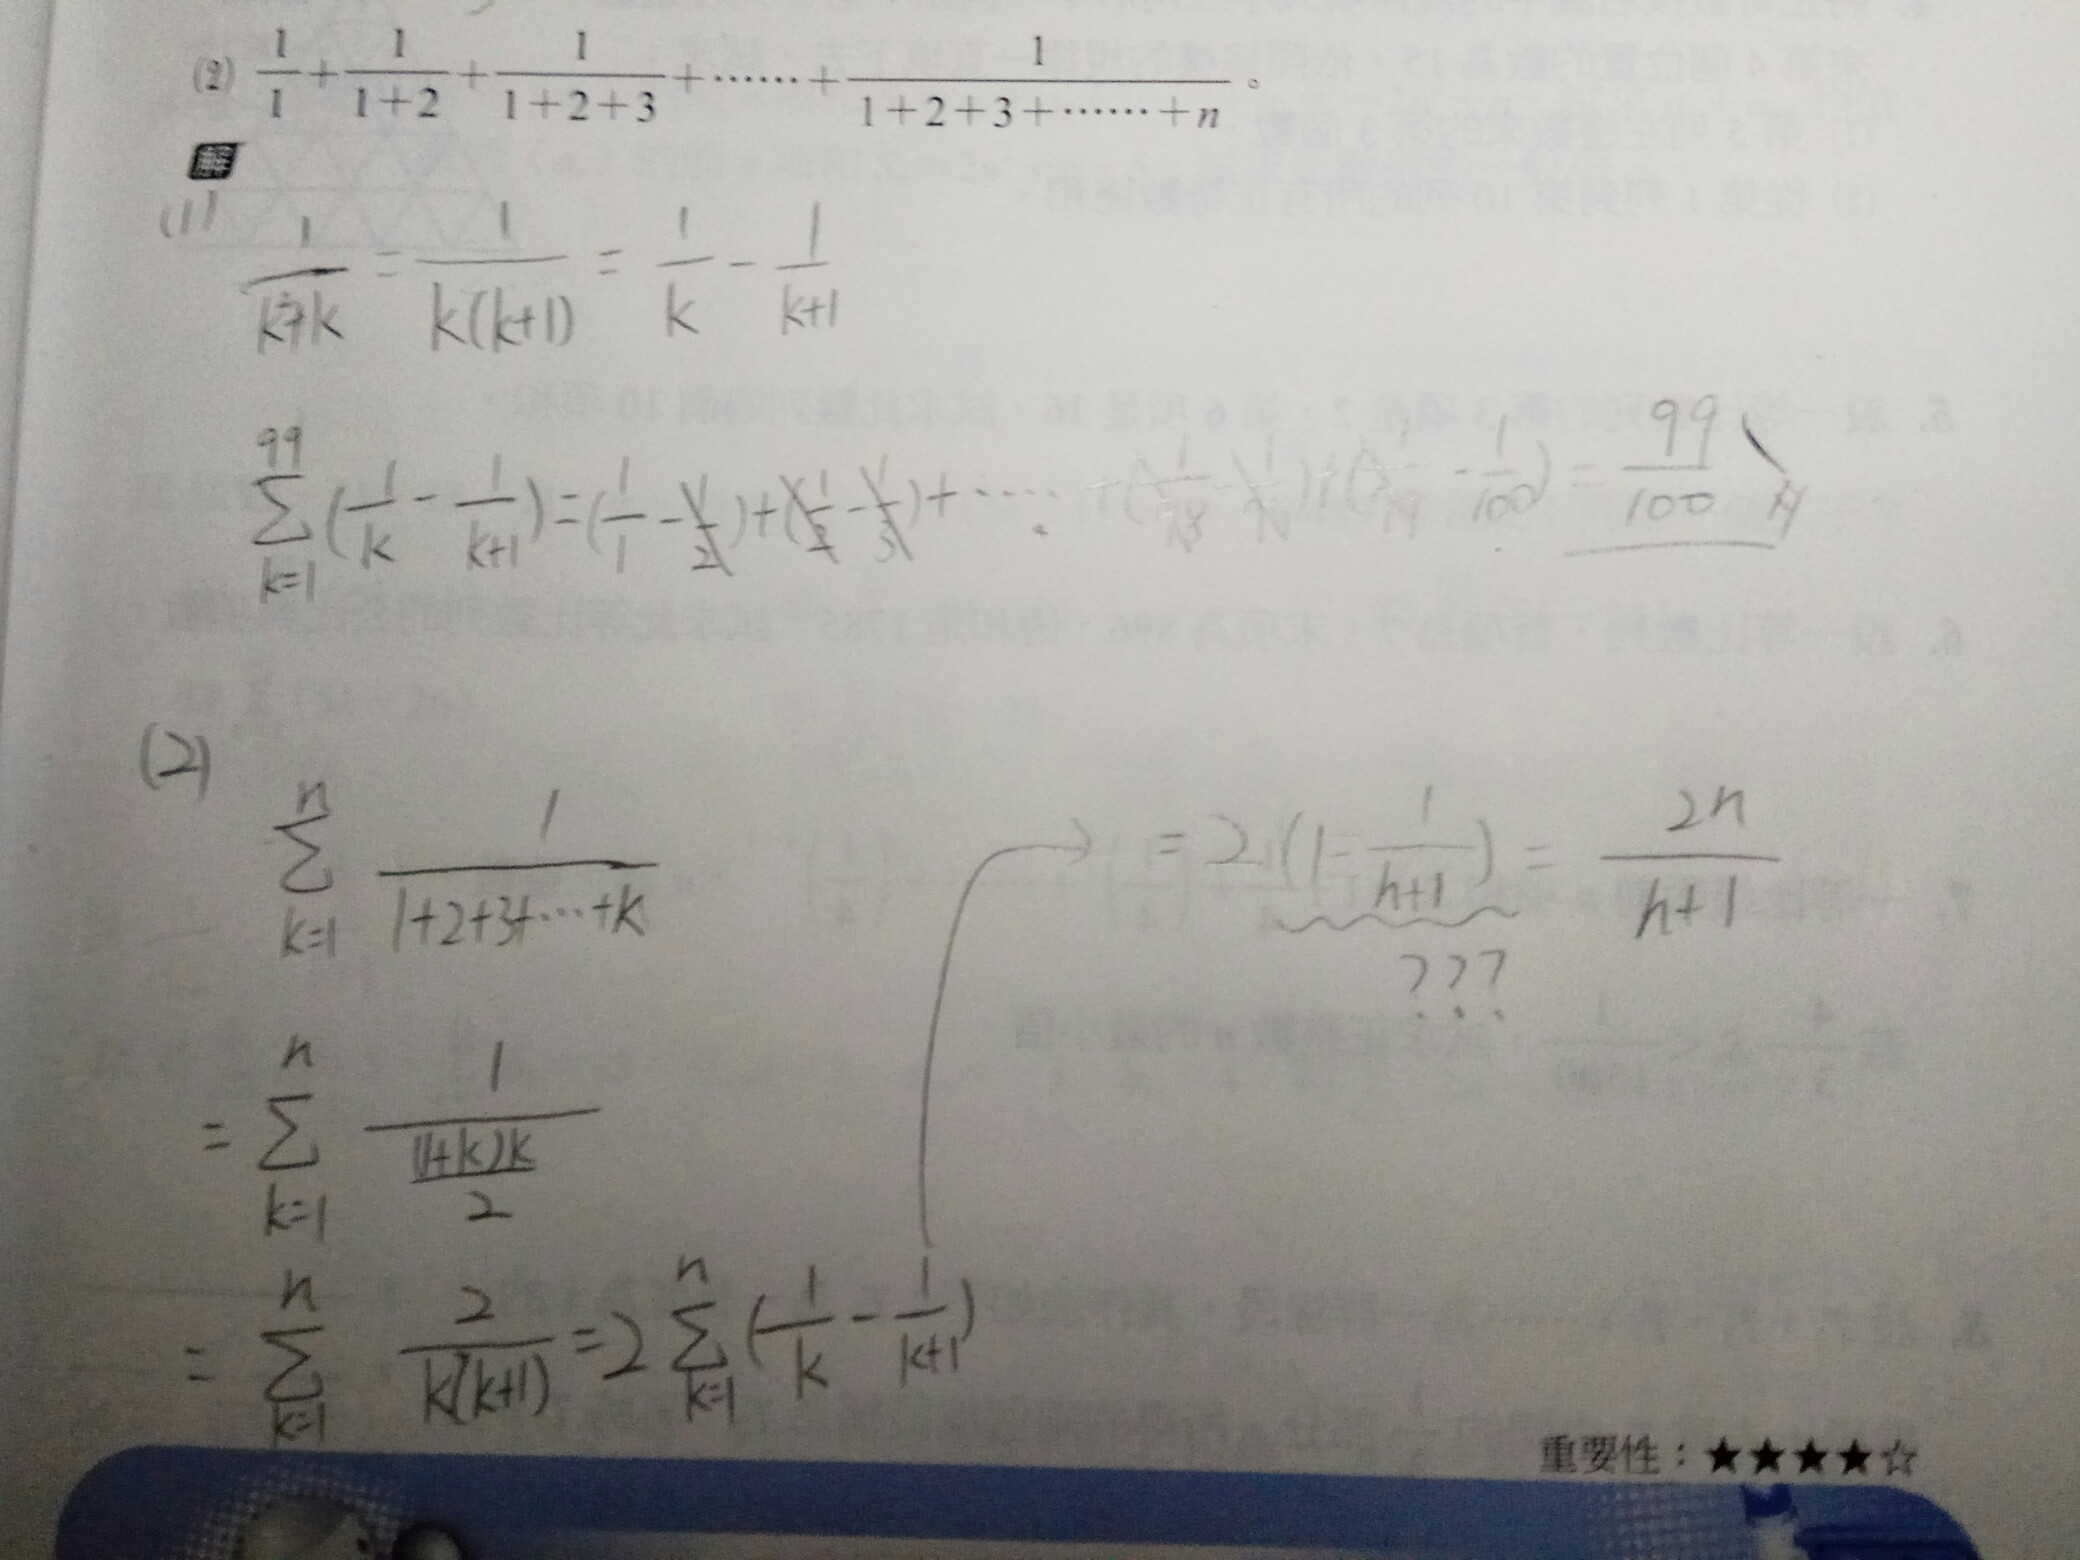 (2) 1/1 + 1/(1+2) + 1/(1+2+3) + ······ + 1/(1+2+3+······+n) 。
解
(1) 1/(k²+k) = 1/(k(k+1)) = 1/k - 1/(k+1)
∑_{k=1}^{99} (1/k - 1/(k+1)) = (1/1 - 1/2) + (1/2 - 1/3) + ····· + (1/98 - 1/99) + (1/99 - 1/100) = 99/100
(2)
∑_{k=1}^{n} 1/(1+2+3+···+k)
= ∑_{k=1}^{n} 1/((1+k)k/2)
= ∑_{k=1}^{n} 2/(k(k+1)) = 2∑_{k=1}^{n} (1/k - 1/(k+1))
→ = 2(1 - 1/(n+1)) = 2n/(n+1)
???
重要性：★★★★☆